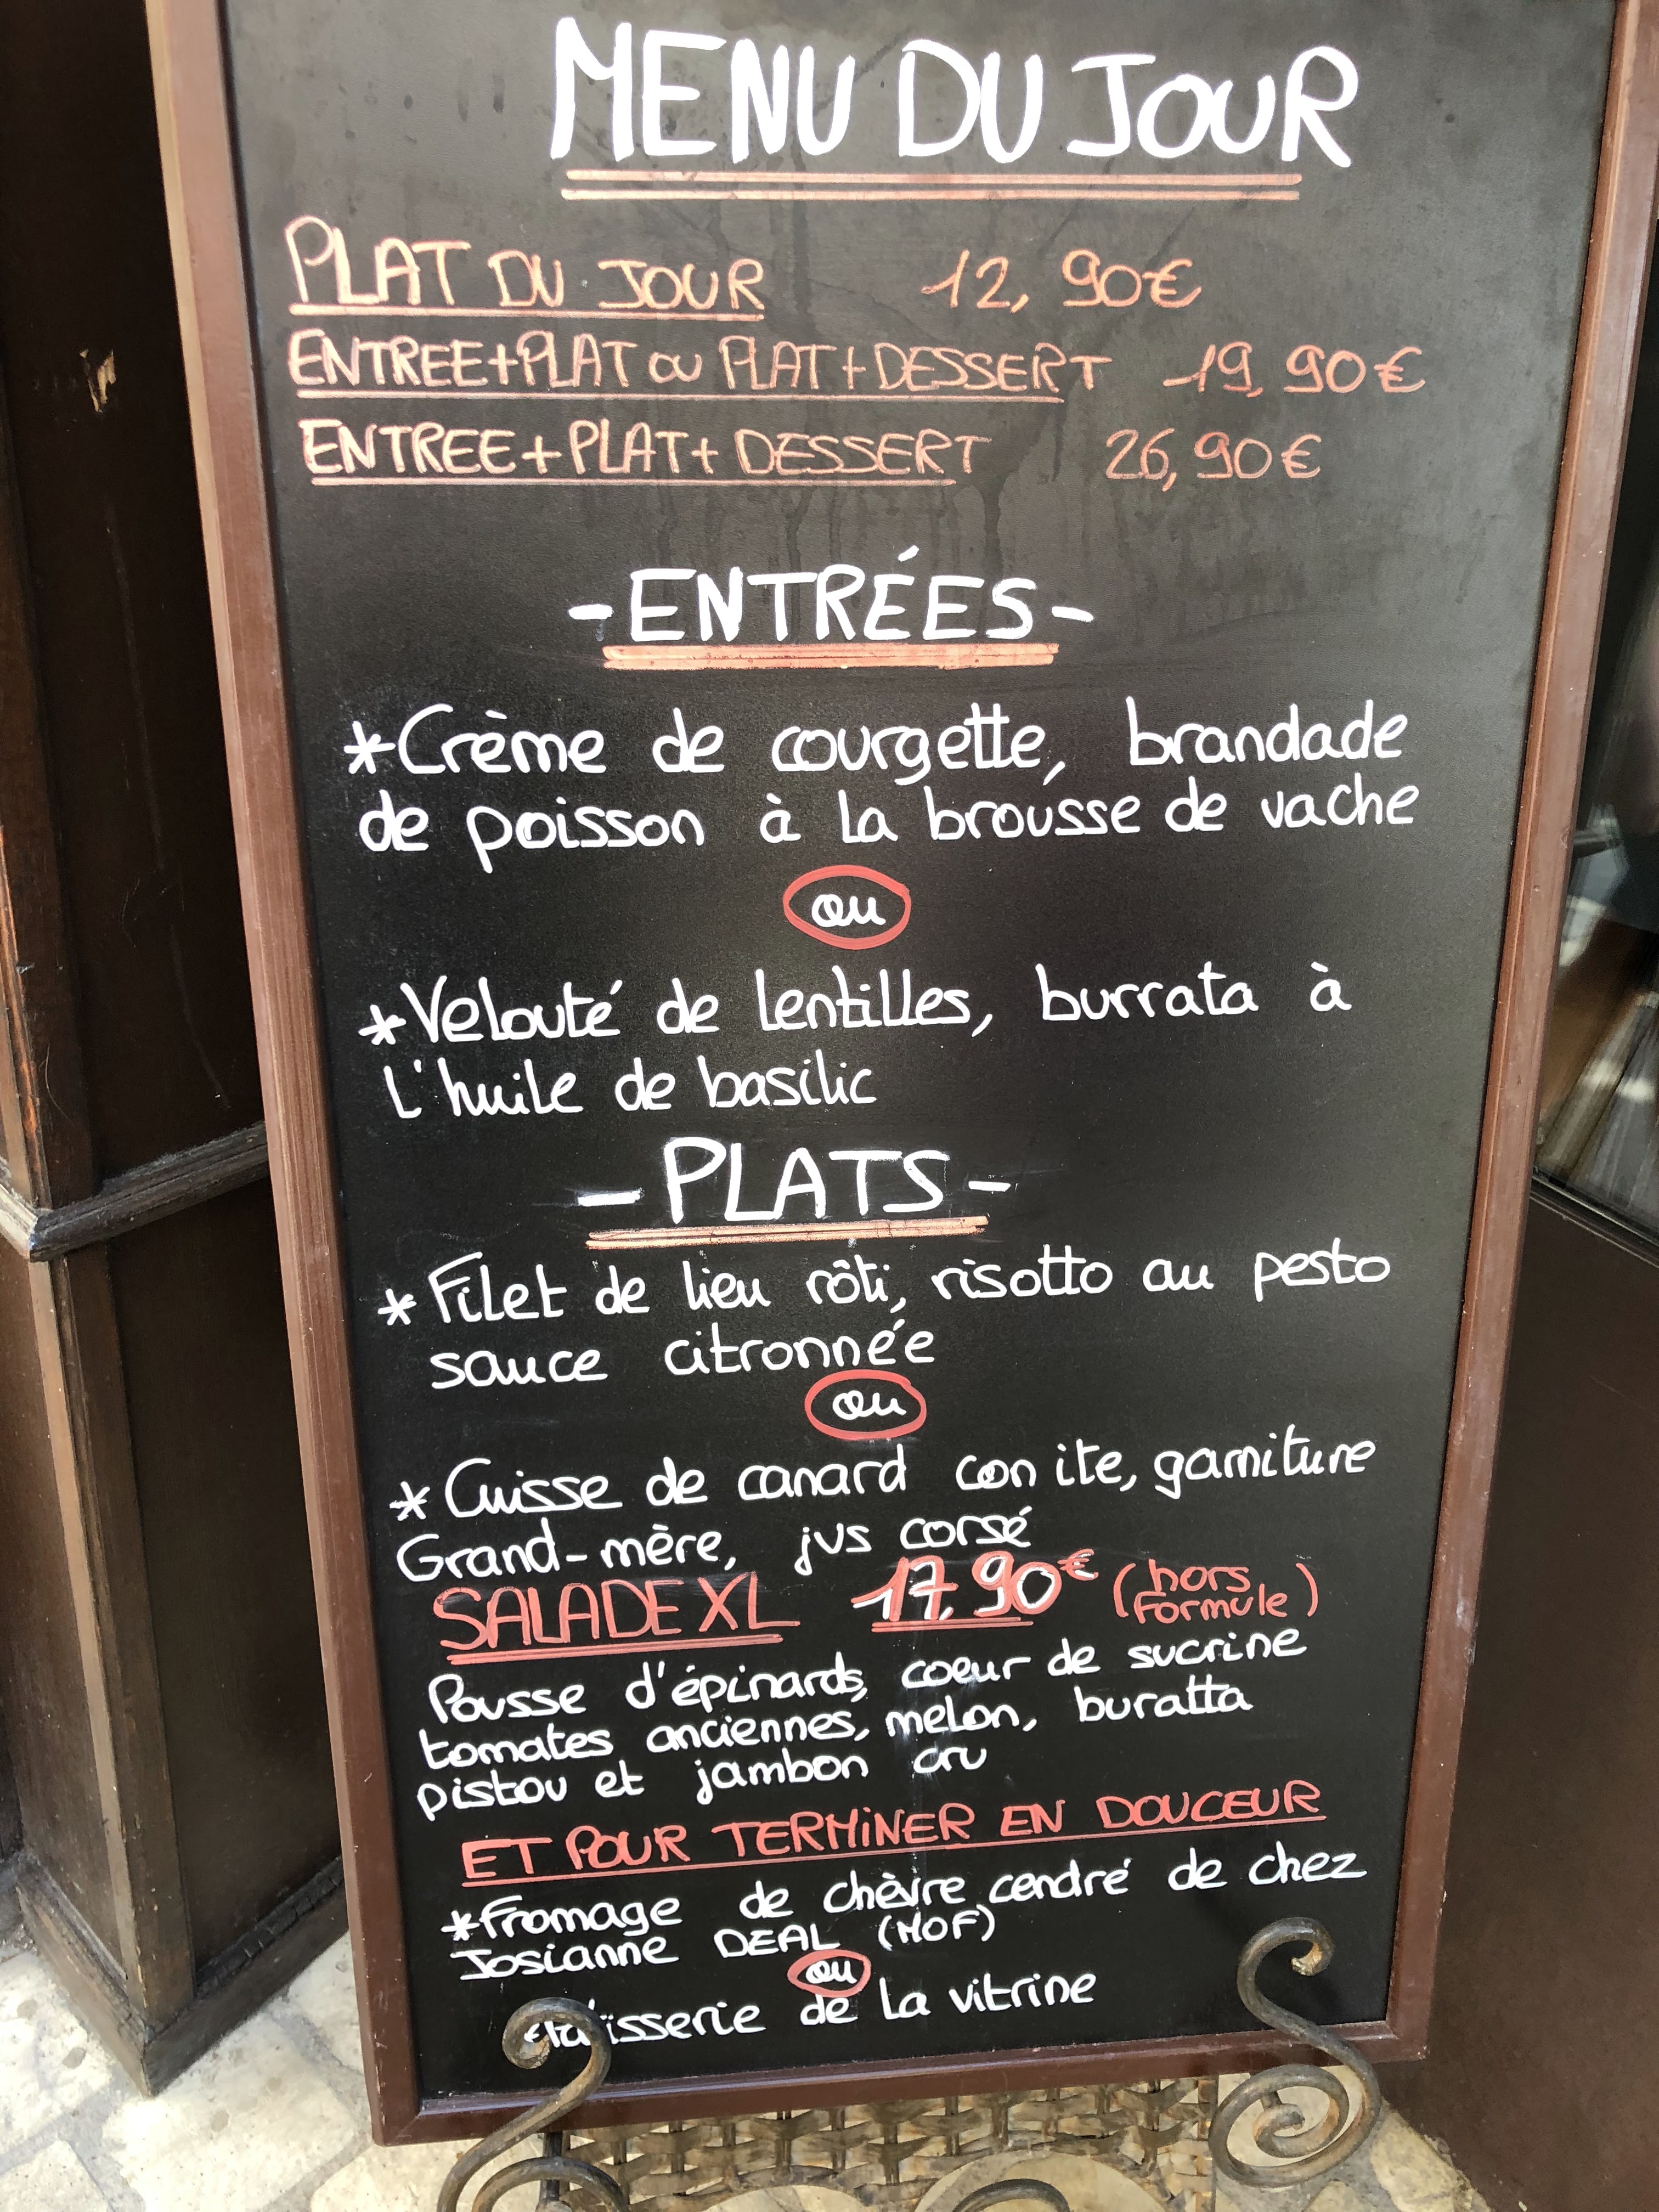 MENU DU JOUR
PLAT DU JOUR 12,90€
ENTREE+PLAT OU PLAT+DESSERT 19,90€
ENTREE+PLAT+DESSERT 26,90€
-ENTRÉES-
*Crème de courgette, brandade
de poisson à la brousse de vache
ou
*Velouté de lentilles, burrata à
l'huile de basilic
-PLATS-
*Filet de lieu rôti, risotto au pesto
sauce citronnée
ou
*Cuisse de canard con ite, garniture
Grand-mère, jus corsé
SALADE XL 17,90€ (hors
formule)
Pousse d'épinards, coeur de sucrine
tomates anciennes, melon, buratta
pistou et jambon cru
ET POUR TERMINER EN DOUCEUR
*Fromage de chèvre cendré de chez
Josianne DEAL (MOF)
ou
de la vitrine